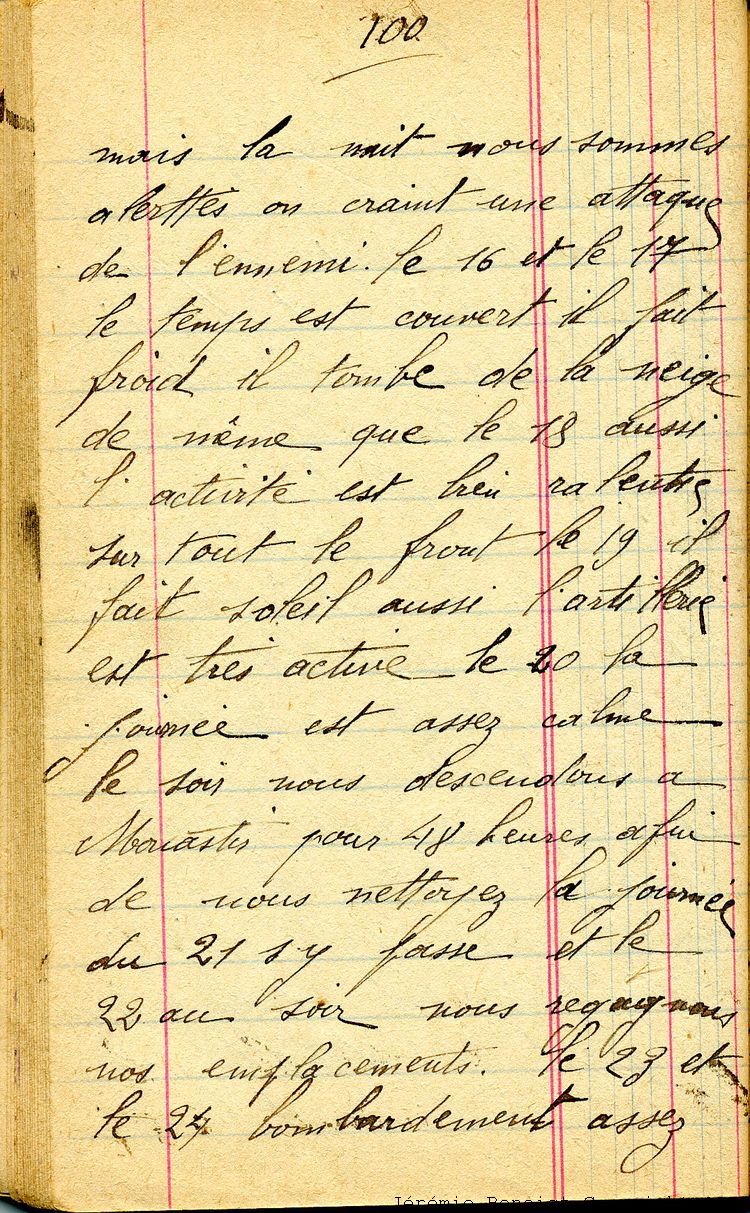 100
mais la nuit nous sommes
alerttés on craint une attaque
de l'ennemi. le 16 et le 17
le temps est couvert il fait
froid il tombe de la neige
de même que le 18 aussi
l'activité est bien ralentie
sur tout le front le 19 il
fait soleil aussi l'artillerie
est très active le 20 la
journée est assez calme
le soir nous descendons a
Monastir pour 48 heures afin
de nous nettoyez la journée
du 21 s y passe et le
22 au soir nous regagnons
nos emplacements. le 23 et
le 24 bombardement assez
Jérémie Benoist